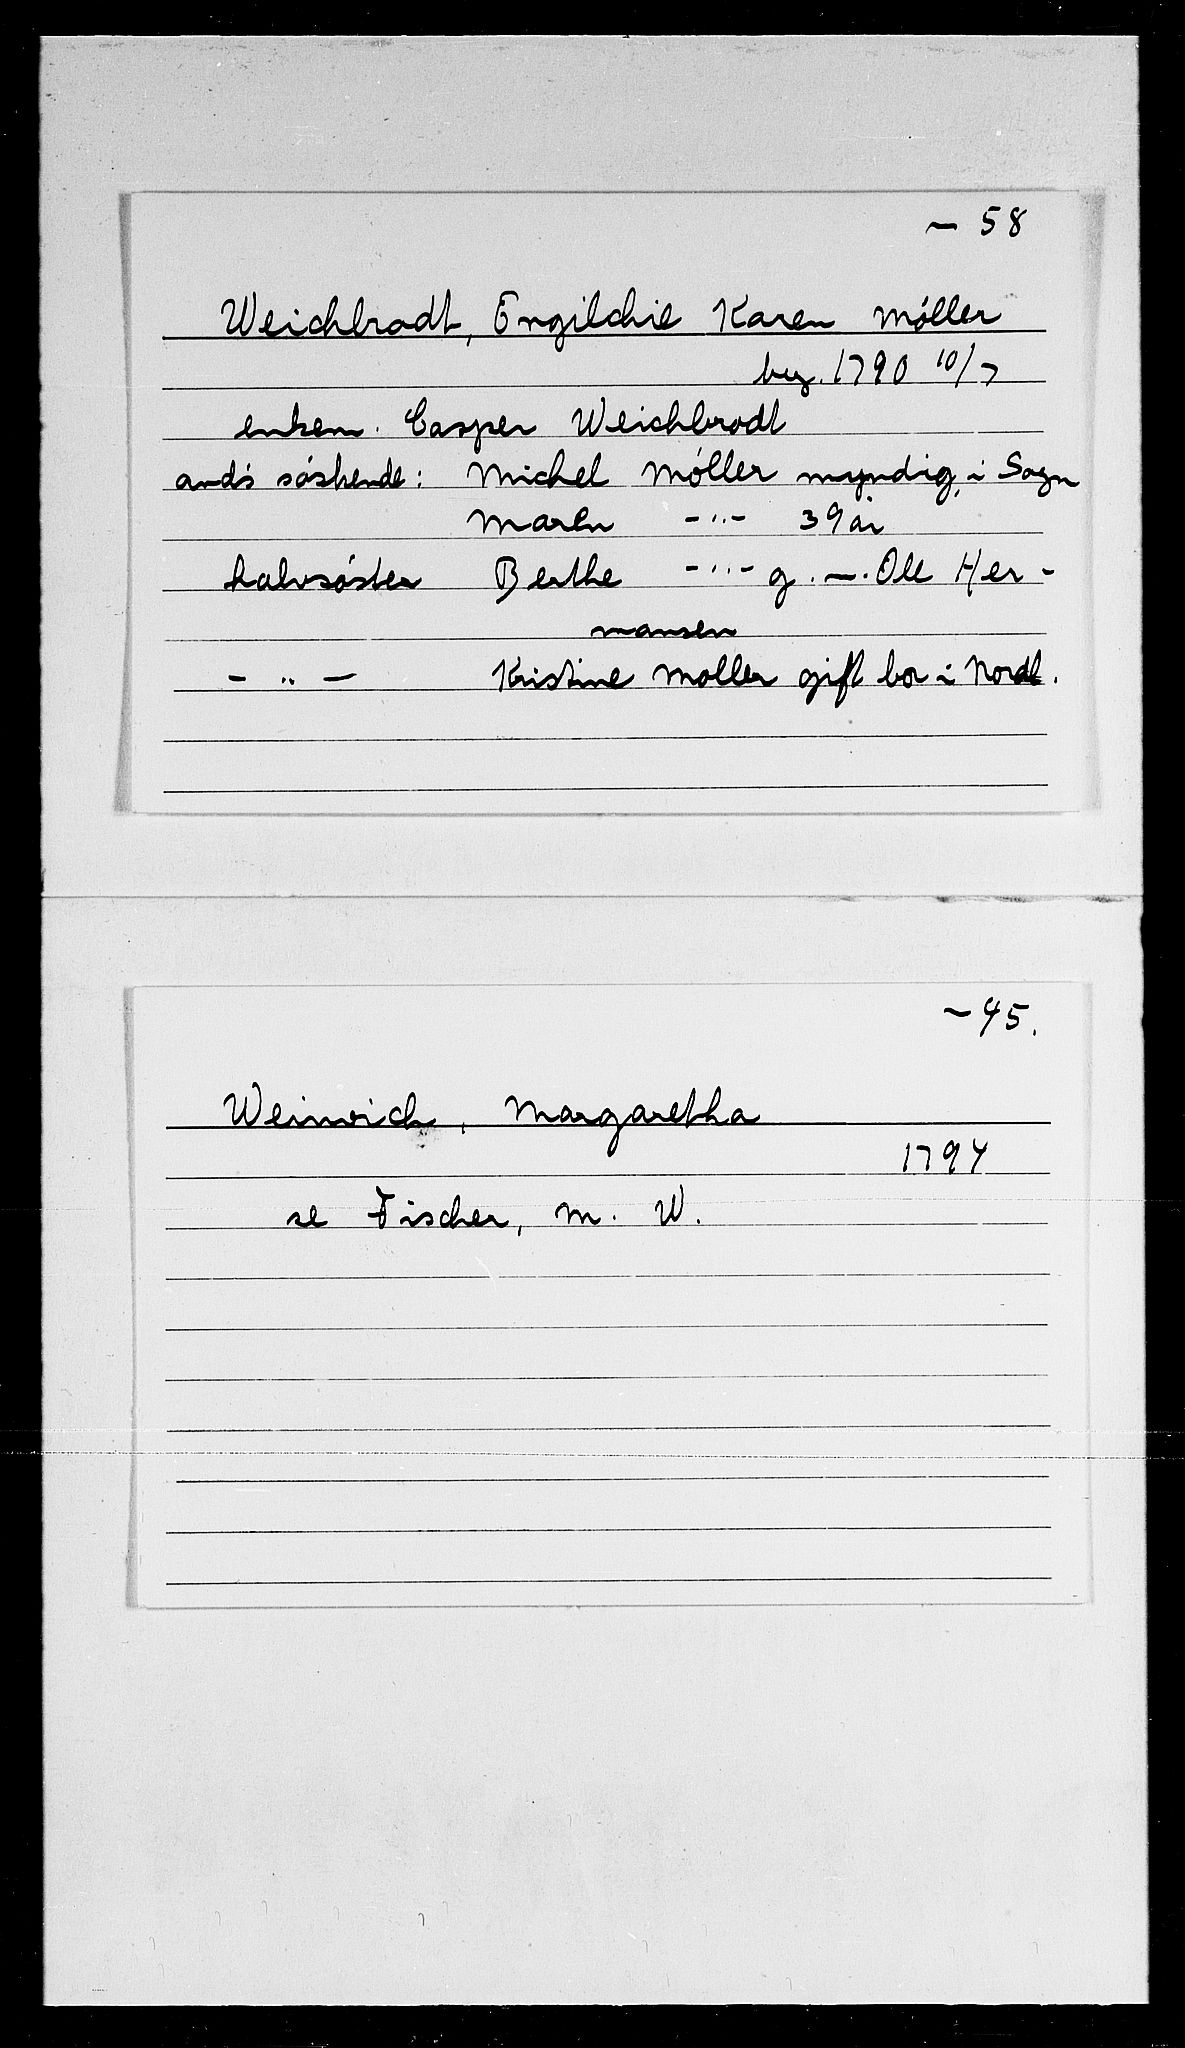 ~ 58
Weichbrodt, Engilchie Karen Møller
beg. 1790 10/7
enkem. Casper Weichbrodt
avdø søskende: Michel Møller myndig, i Sogn
Maren -"- 39 år
halvsøster Berthe -"- g. -. Ole Her-
mansen
- " - Kristine Møller gift bor i Nordl.
~ 45.
Weinwich, Margaretha
1794
se Fischer, M. W.